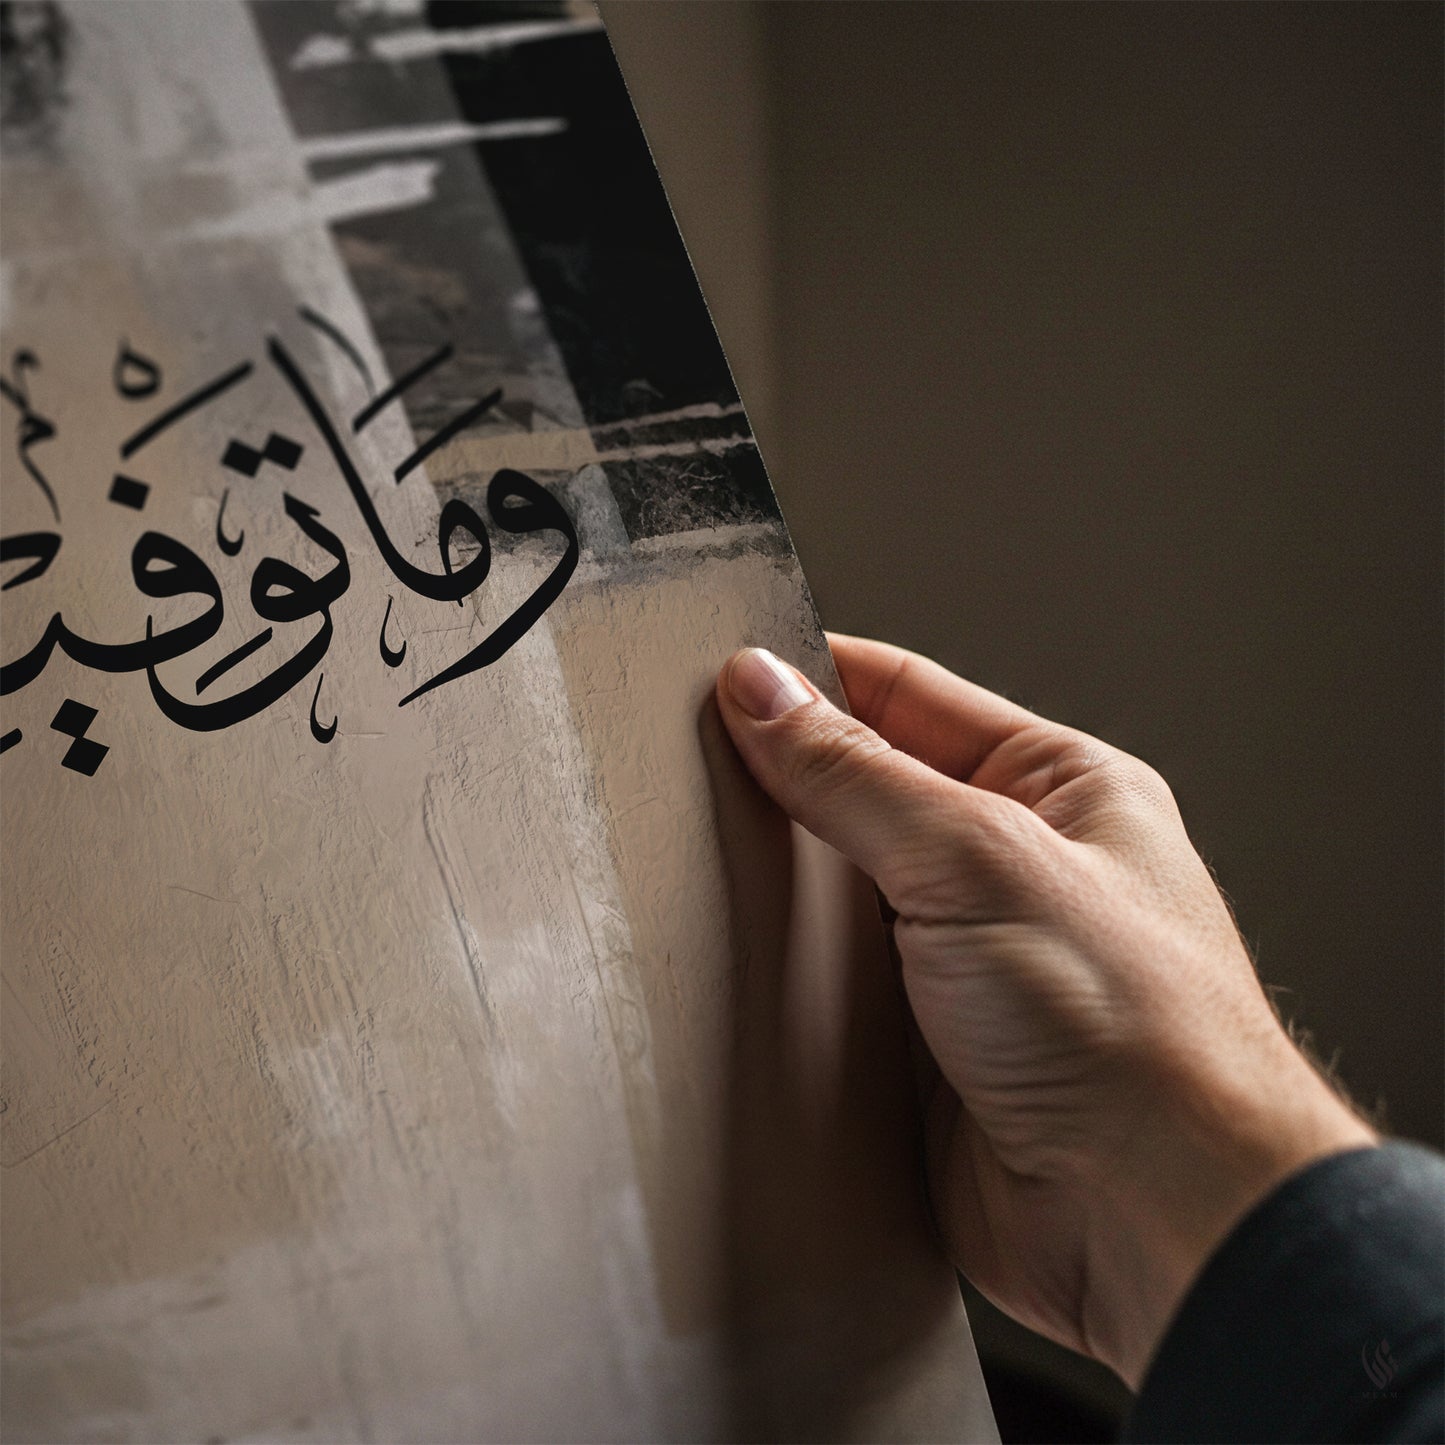 وَمَا تَوْفِي